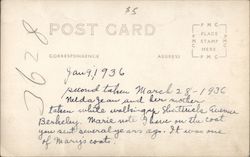 35
POST CARD
PMC
PLACE
STAMP
HERE
PMC
CORRESPONDENCE
ADDRESS
3628
Jan 9, 1936
second taken March 28-1936
and her mother
taken while walking up Shattuck Avenue
Berkeley. Marie note I have on the coat
you sent several years ago. It was one
of Marys coats.